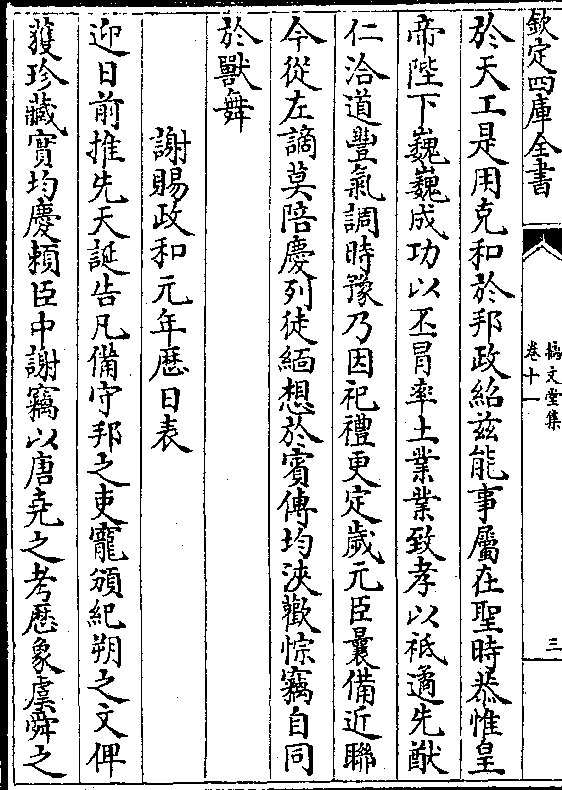 欽定四庫全書
摛文堂集
卷十一
三
於天工是用克和於邦政紹兹能事屬在聖時恭惟皇
帝陛下巍巍成功以丕冒率土業業致孝以祗遹先猷
仁洽道豐氣調時豫乃因祀禮更定歲元臣曩備近聯
今從左謫莫陪慶列徒緬想於賓傳均浹歡悰竊自同
於獸舞
謝賜政和元年厯日表
迎日前推先天誕告凡備守邦之吏寵頒紀朔之文俾
獲珍藏實均慶頼臣中謝竊以唐堯之考厯象虞舜之